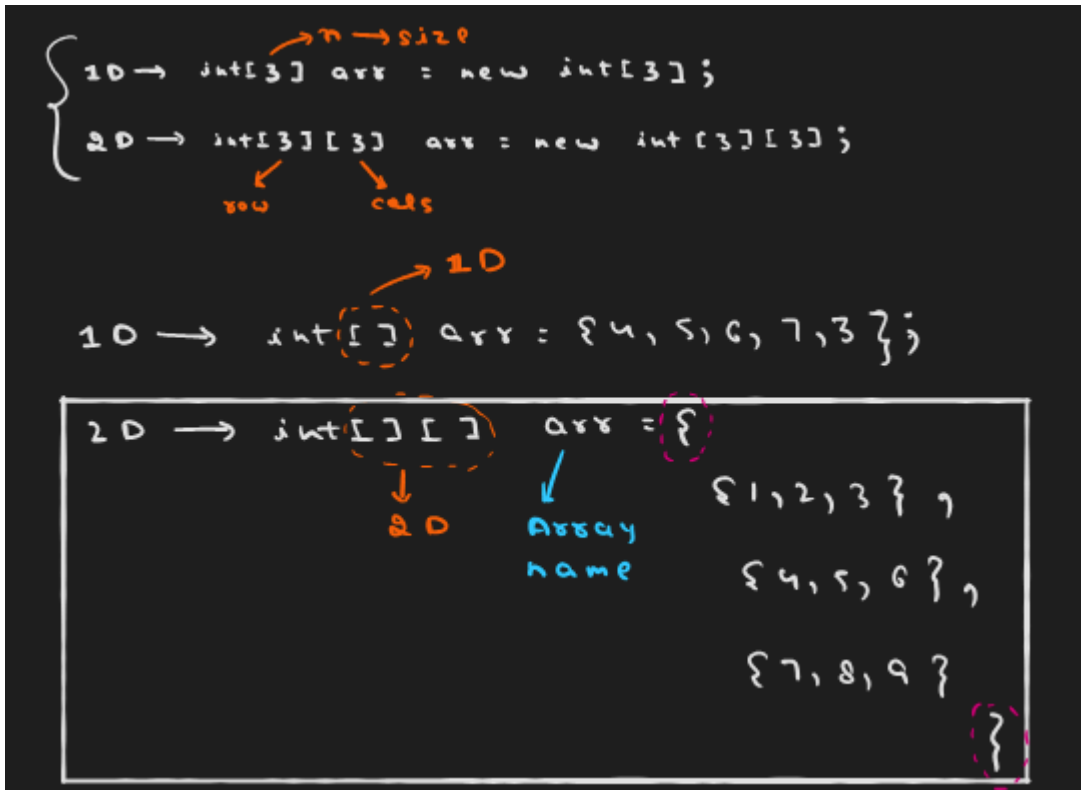 n → size
1D → int[3] arr = new int[3];
2D → int[3][3] arr = new int[3][3];
row cols
1D
1D → int[] arr = {4, 5, 6, 7, 3};
2D → int[][] arr = {
{1, 2, 3},
2D Array
name
{4, 5, 6},
{7, 8, 9}
}